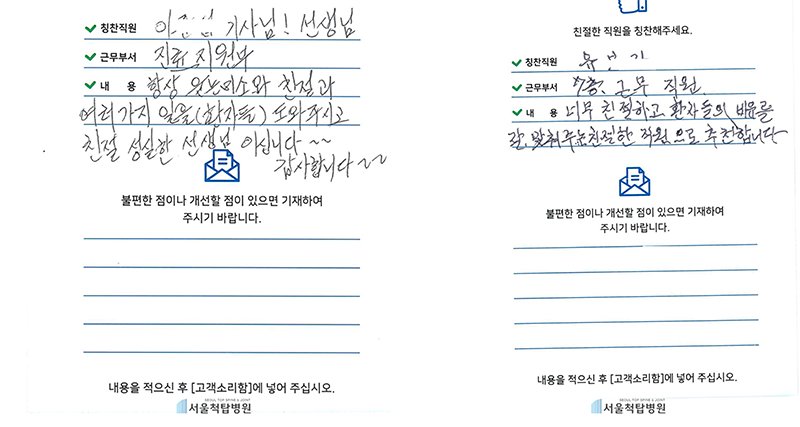 칭찬직원 기사님! 선생님
근무부서 진료지원부
내 용 항상 웃는미소와 친절과
여러가지 일을(환자들) 도와주시고
친절 성실한 선생님 이십니다~~
감사합니다~~
불편한 점이나 개선할 점이 있으면 기재하여
주시기 바랍니다.
내용을 적으신 후 [고객소리함]에 넣어 주십시오.
SEOUL TOP SPINE & JOINT
서울척탑병원
친절한 직원을 칭찬해주세요.
칭찬직원
근무부서 7층, 근무 직원.
내 용 너무 친절하고 환자들의 비유를
잘 맞춰주는친절한 직원으로 추천합니다
불편한 점이나 개선할 점이 있으면 기재하여
주시기 바랍니다.
내용을 적으신 후 [고객소리함]에 넣어 주십시오.
SEOUL TOP SPINE & JOINT
서울척탑병원